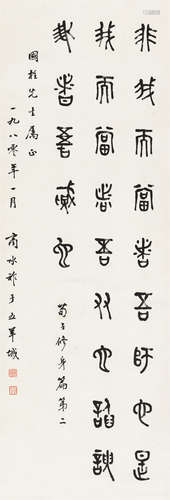 非我而當者吾師也是
我而當者吾友也諂諛
我者吾賊也
荀子修身篇第二
國 先生屬正
一九八零年一月 商承祚于五羊城